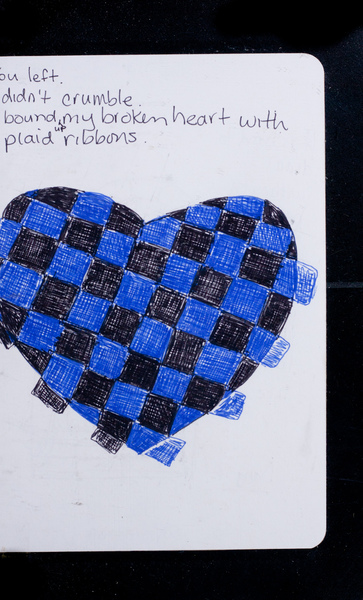 ou left.
didn't crumble.
bound up my broken heart with
plaid ribbons.